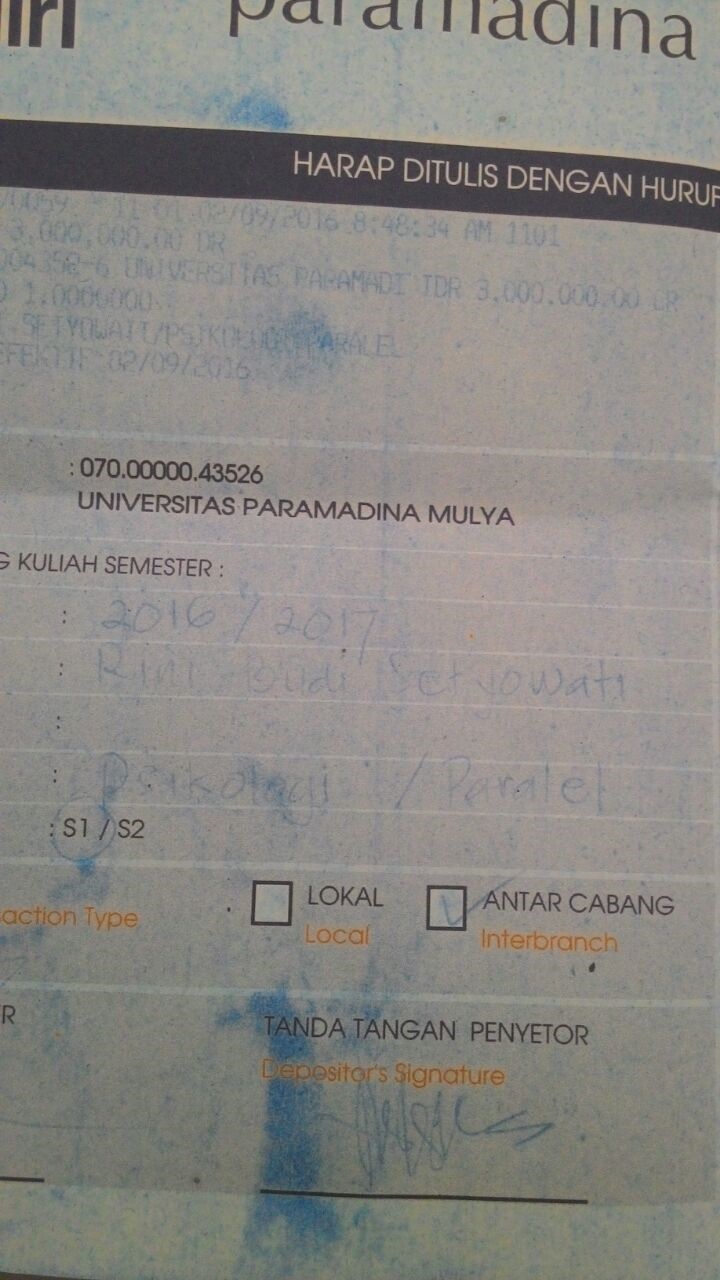 iri paramadina
HARAP DITULIS DENGAN HURUF
11-01 02/09/2016 8:48:34 AM 1101
3,000,000.00 DR
004352-6 UNIVERSITAS PARAMADI IDR 3.000.000.00 CR
1.0000000
SETYOWATI/PSIKOLOGI PARALEL
EFEKTIF 02/09/2016
: 070.00000.43526
UNIVERSITAS PARAMADINA MULYA
G KULIAH SEMESTER :
: 2016 / 2017
: Rini Budi Setyowati
:
: Psikologi / Paralel
: S1 / S2
action Type
LOKAL
Local
ANTAR CABANG
Interbranch
R
TANDA TANGAN PENYETOR
Depositor's Signature